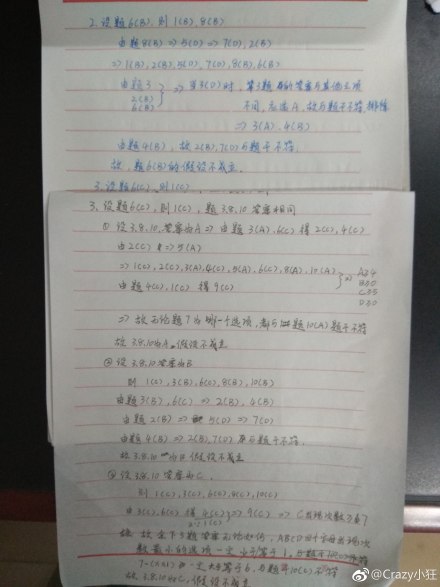 2. 设题6(B), 则1(B), 8(B)
由题8(B) => 5(D) => 7(D), 2(B)
=> 1(B), 2(B), 5(D), 7(D), 8(B), 6(B)
由题3
2(B)
6(B)
=> 当3(D)时, 第3题的答案与其他三项
不同, 应选A, 故与题干不符, 排除
=> 3(A), 4(B)
由题4(B), 故2(B), 7(D)与题干不符
故, 题6(B)的假设不成立.
3. 设题6(C), 则1(C),
3. 设题6(C), 则1(C), 题3.8.10答案相同
① 设3.8.10答案为A => 由题3(A), 6(C) 得2(C), 4(C)
由2(C) => 5(A)
=> 1(C), 2(C), 3(A), 4(C), 5(A), 6(C), 8(A), 10(A)
由题4(C), 1(C) 得9(C)
=> A≥4
B≥0
C≥5
D≥0
=> 故无论题7为哪一个选项, 都与题10(A)题干不符
故3.8.10为A, 假设不成立
② 设3.8.10答案为B
则1(C), 3(B), 6(C), 8(B), 10(B)
由题3(B), 6(C) => 2(B), 4(B)
由题2(B) => 5(D) => 7(D)
由题4(B) => 2(B), 7(D)与题干不符.
故3.8.10为B假设不成立.
③ 设3.8.10答案为C.
则1(C), 3(C), 6(C), 8(C), 10(C)
由3(C), 6(C) 得4(C) => 9(C) => C出现次数≥7
1(C)
故余下3题答案无论如何, ABCD四个字母出现次
数最小的选项一定小于等于1, 与题干10(C)不符
7-(≤1) 一定大于等于6, 与题干10(C)
故3.8.10为C, 假设不成立
@Crazy小狂